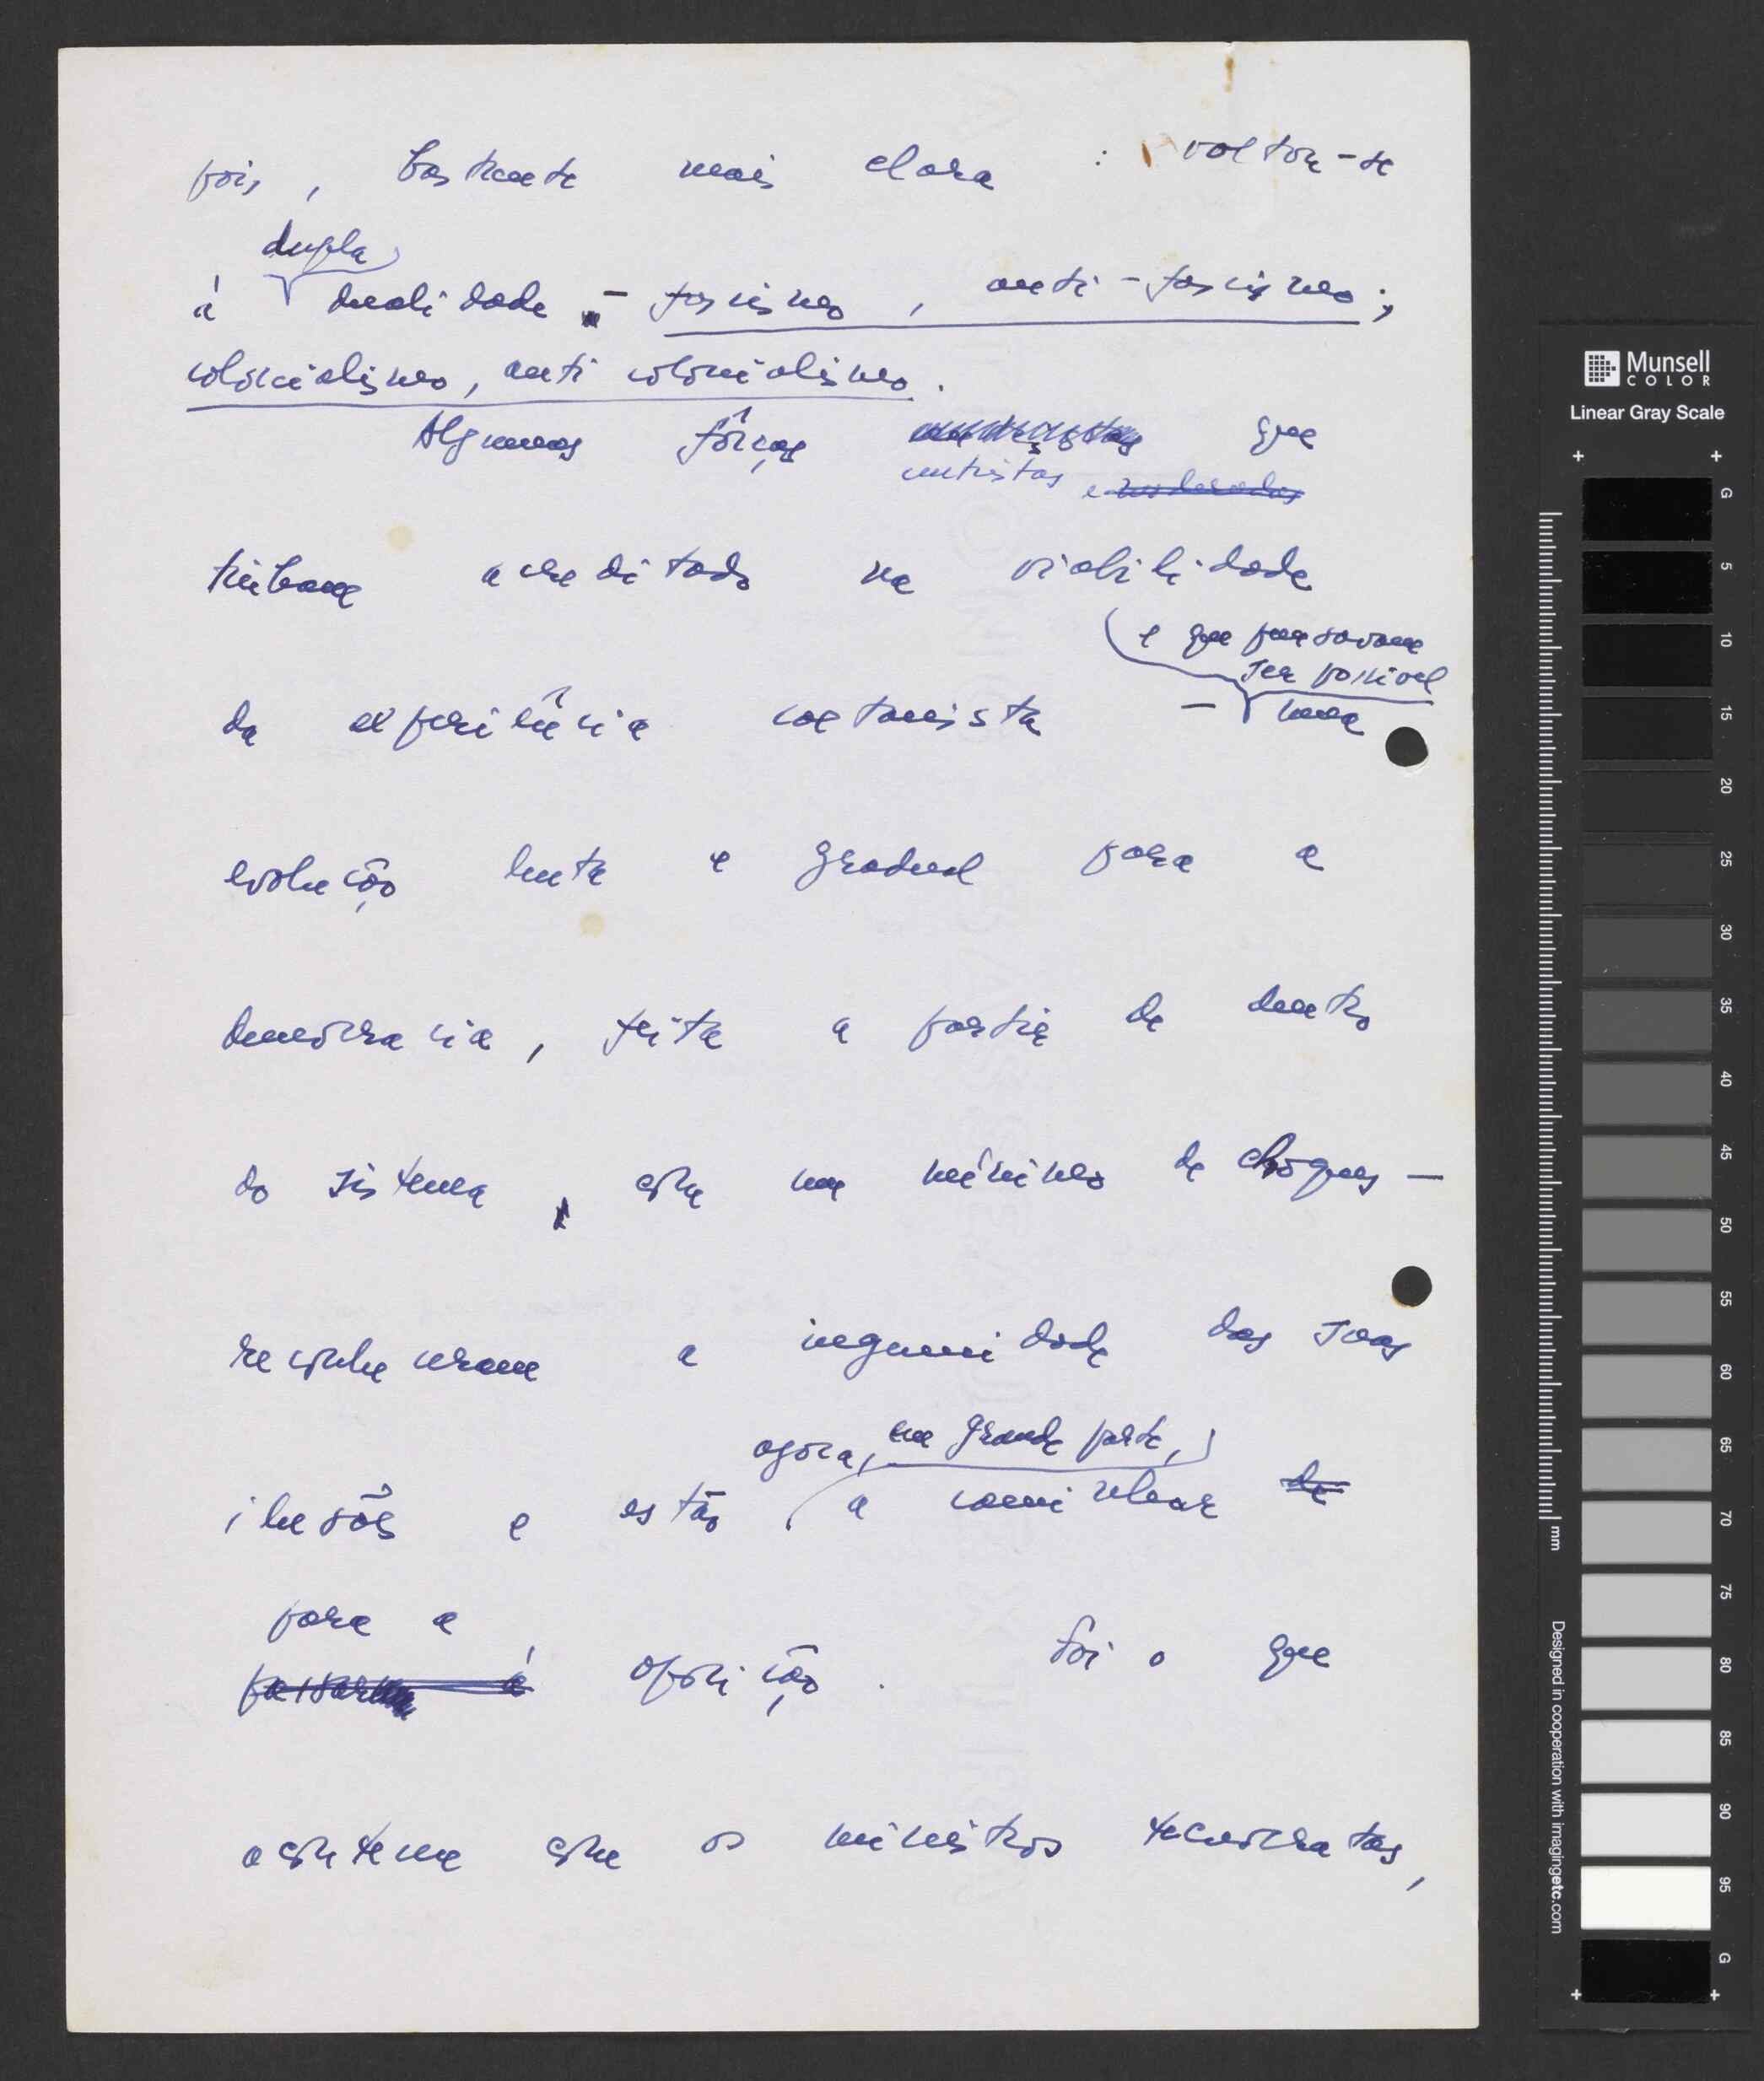 pois, bastante mais clara : voltou-se
dupla
à dualidade - fascismo, anti-fascismo;
colonialismo, anti colonialismo.
Algumas fôrças que
centristas e moderadas
tinham acreditado na viabilidade
e que pensavam
ser possível
da experiência caetanista - uma
evolução lenta e gradual para a
democracia, feita a partir de dentro
do sistema, com um mínimo de choques -
reconheceram a ingenuidade das suas
agora, em grande parte,
ilusões e estão, a caminhar de
para a
passaram à oposição. Foi o que
aconteceu com os ministros tecnocratas,
Munsell
COLOR
Linear Gray Scale
G
5
10
15
20
25
30
35
40
45
50
55
60
65
70
75
80
85
90
95
G
mm
Designed in cooperation with imagingetc.com